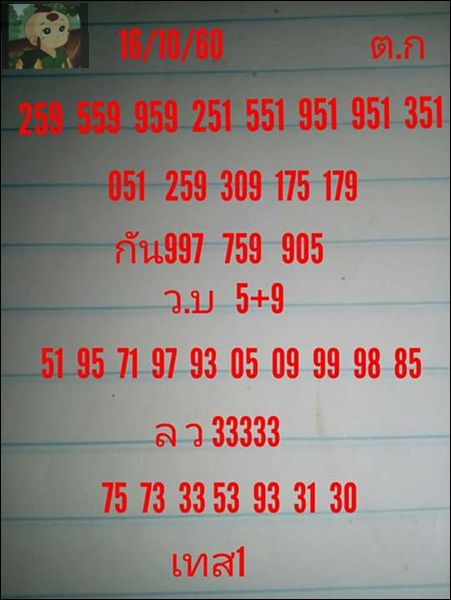 16/10/60 ต.ก
259 559 959 251 551 951 951 351
051 259 309 175 179
กัน997 759 905
ว.บ 5+9
51 95 71 97 93 05 09 99 98 85
ล ว 33333
75 73 33 53 93 31 30
เทส1